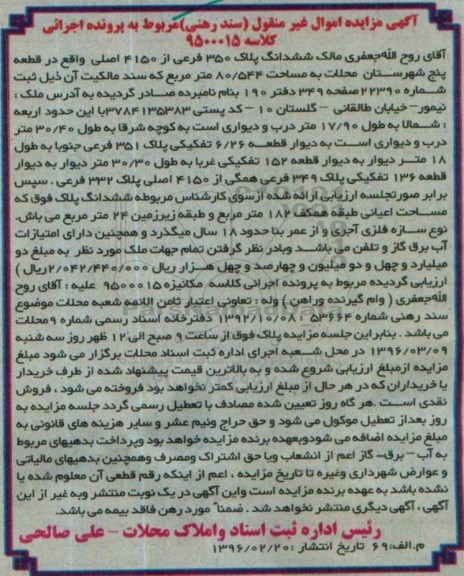 آگهی مزایده اموال غیر منقول (سند رهنی)مربوط به پرونده اجرائی
کلاسه ۹۵۰۰۰۱۵
آقای روح الله‌جعفری مالک ششدانگ پلاک ۳۵۰ فرعی از ۴۱۵۰ اصلی واقع در قطعه
پنج شهرستان محلات به مساحت ۸۰/۵۴۴ متر مربع که سند مالکیت آن ذیل ثبت
شماره ۲۲۳۹۰ صفحه ۳۴۹ دفتر ۱۹۰ بنام نامبرده صادر گردیده به آدرس ملک :
نیمور- خیابان طالقانی - گلستان ۱۰ - کد پستی ۳۷۸۴۱۳۵۳۸۳با این حدود اربعه
: شمالا به طول ۱۷/۹۰ متر درب و دیواری است به کوچه شرقا به طول ۳۰/۴۰ متر
درب و دیواری است به دیوار قطعه ۶/۲۶ تفکیکی پلاک ۳۵۱ فرعی جنوبا به طول
۱۸ متر دیوار به دیوار قطعه ۱۵۲ تفکیکی غربا به طول ۳۰/۳۰ متر دیوار به دیوار
قطعه ۱۳۶ تفکیکی پلاک ۳۴۹ فرعی همگی از ۴۱۵۰ اصلی پلاک ۳۳۲ فرعی . سپس
برابر صورتجلسه ارزیابی ارائه شده ازسوی کارشناس مربوطه ششدانگ پلاک فوق که
مساحت اعیانی طبقه همکف ۱۸۲ متر مربع و طبقه زیرزمین ۲۴ متر مربع می باش.
نوع سازه فلزی آجری و از عمر بنا حدود ۱۸ سال میگذرد و همچنین دارای امتیازات
آب برق گاز و تلفن می باشد وبادر نظر گرفتن تمام جهات ملک مورد نظر به مبلغ دو
میلیارد و چهل و دو میلیون و چهارصد و چهل هزار ریال (۲/۰۴۲/۴۴۰/۰۰۰ریال )
ارزیابی گردیده مربوط به پرونده اجرائی کلاسه مکانیزه ۹۵۰۰۰۱۵ علیه : آقای روح
الله‌جعفری ( وام گیرنده وراهن ) وله : تعاونی اعتبار ثامن الائمه شعبه محلات موضوع
سند رهنی شماره ۵۳۶۶۴ - ۱۳۹۲/۱۰/۰۸ دفترخانه اسناد رسمی شماره ۹محلات
می باشد . بنابراین جلسه مزایده پلاک فوق از ساعت ۹ صبح الی ۱۲ ظهر روز سه شنبه
۱۳۹۶/۰۳/۰۹ در محل شعبه اجرای اداره ثبت اسناد محلات برگزار می شود مبلغ
مزایده ازمبلغ ارزیابی شروع شده و به بالاترین قیمت پیشنهاد شده از طرف خریدار
یا خریداران که در هر حال از مبلغ ارزیابی کمتر نخواهد بود فروخته می شود . فروش
نقدی است .هر گاه روز تعیین شده مصادف با تعطیل رسمی گردد جلسه مزایده به
روز بعداز تعطیل موکول می شود و حق حراج ونیم عشر و سایر هزینه های قانونی به
مبلغ مزایده اضافه می شودوبعهده برنده مزایده خواهد بود وپرداخت بدهیهای مربوط
به آب - برق- گاز اعم از انشعاب ویا حق اشتراک ومصرف وهمچنین بدهیهای مالیاتی
و عوارض شهرداری وغیره تا تاریخ مزایده ، اعم از اینکه رقم قطعی آن معلوم شده یا
نشده باشد به عهده برنده مزایده است واین آگهی در یک نوبت منتشر وبه غیر از این
آگهی ، آگهی دیگری منتشر نخواهد شد . ضمناً مورد رهن فاقد بیمه می باشد.
رئیس اداره ثبت اسناد واملاک محلات - علی صالحی
م.الف:۶۹ تاریخ انتشار :۱۳۹۶/۰۲/۲۰